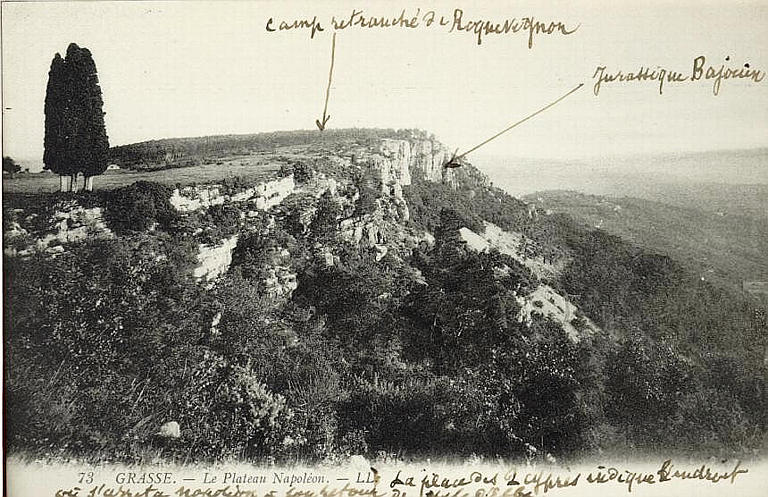 Camp retranché de Roquevignon
Jurassique Bajocien
73 GRASSE. — Le Plateau Napoléon. — LL. La place des 2 cyprès indique l'endroit
où s'arreta napoléon à son retour de